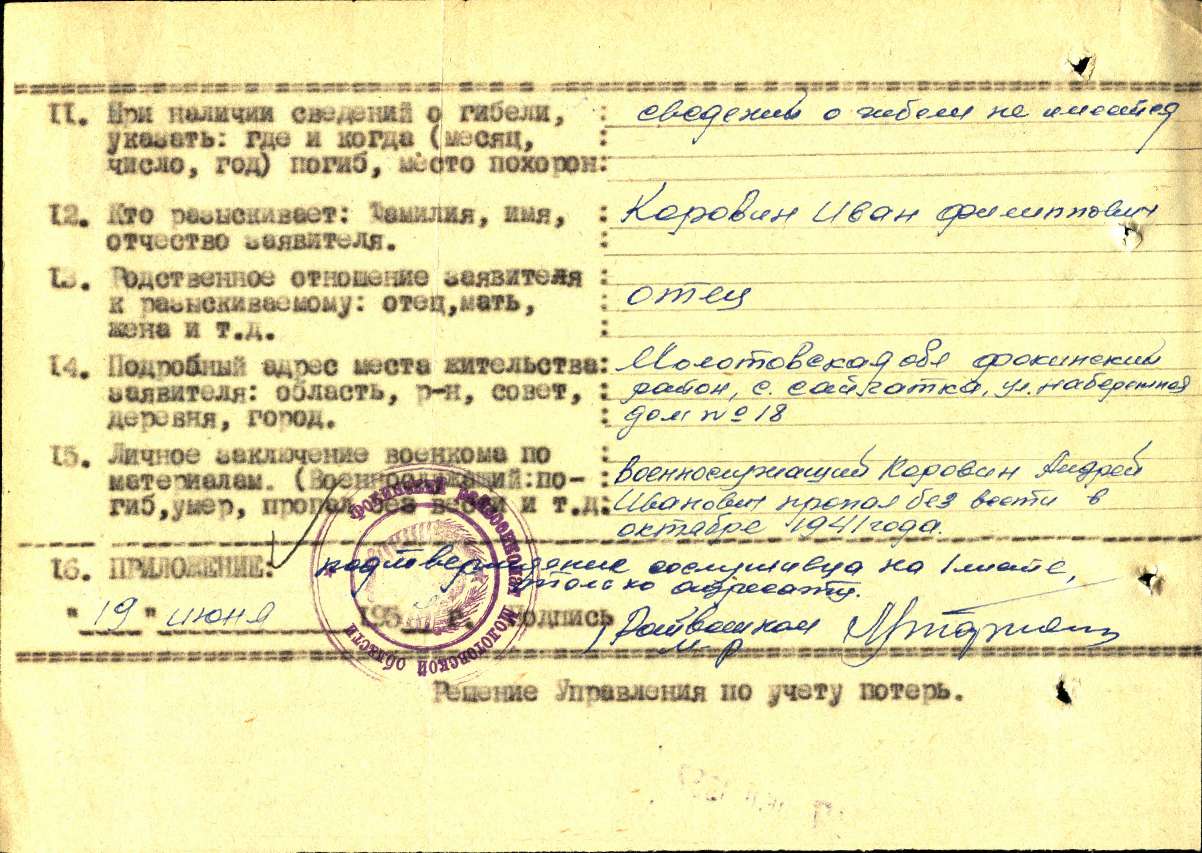 11. При наличии сведений о гибели, : сведений о гибели не имеется
указать: где и когда (месяц, :
число, год) погиб, место похорон:
12. Кто разыскивает: Фамилия, имя, : Коровин Иван Филиппович
отчество заявителя. :
13. Родственное отношение заявителя :
к разыскиваемому: отец,мать, : отец
жена и т.д. :
14. Подробный адрес места жительства: Молотовская обл Фокинский
заявителя: область, р-н, совет, : район, с. Сайгатка, ул. Набережная
деревня, город. дом № 18
15. Личное заключение военкома по :
материалам. (Военнослужащий:по- : Военнослужащий Коровин Андрей
гиб,умер, пропал без вести и т.д: Иванович пропал без вести в
октябре 1941 года.
16. ПРИЛОЖЕНИЕ: подтверждение сослуживца на 1 листе,
только адресату.
"19" июня 195 г. Подпись Райвоенком
м-р
Решение Управления по учету потерь.
Фокинский Райвоенкомат Молотовской области